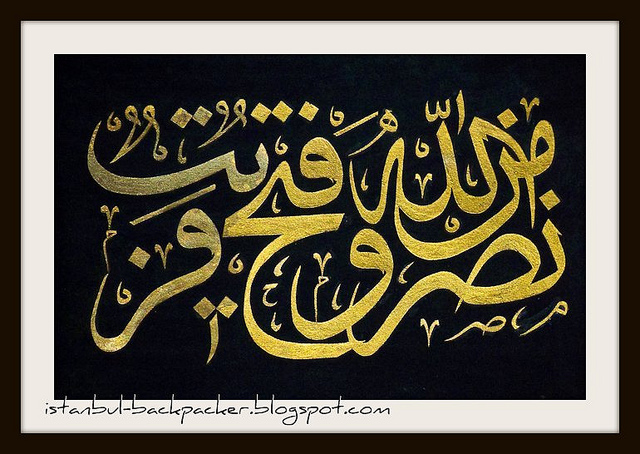 نَصْرٌ مِنَ اللهِ وَفَتْحٌ قَرِيبٌ
istanbul-backpacker.blogspot.com